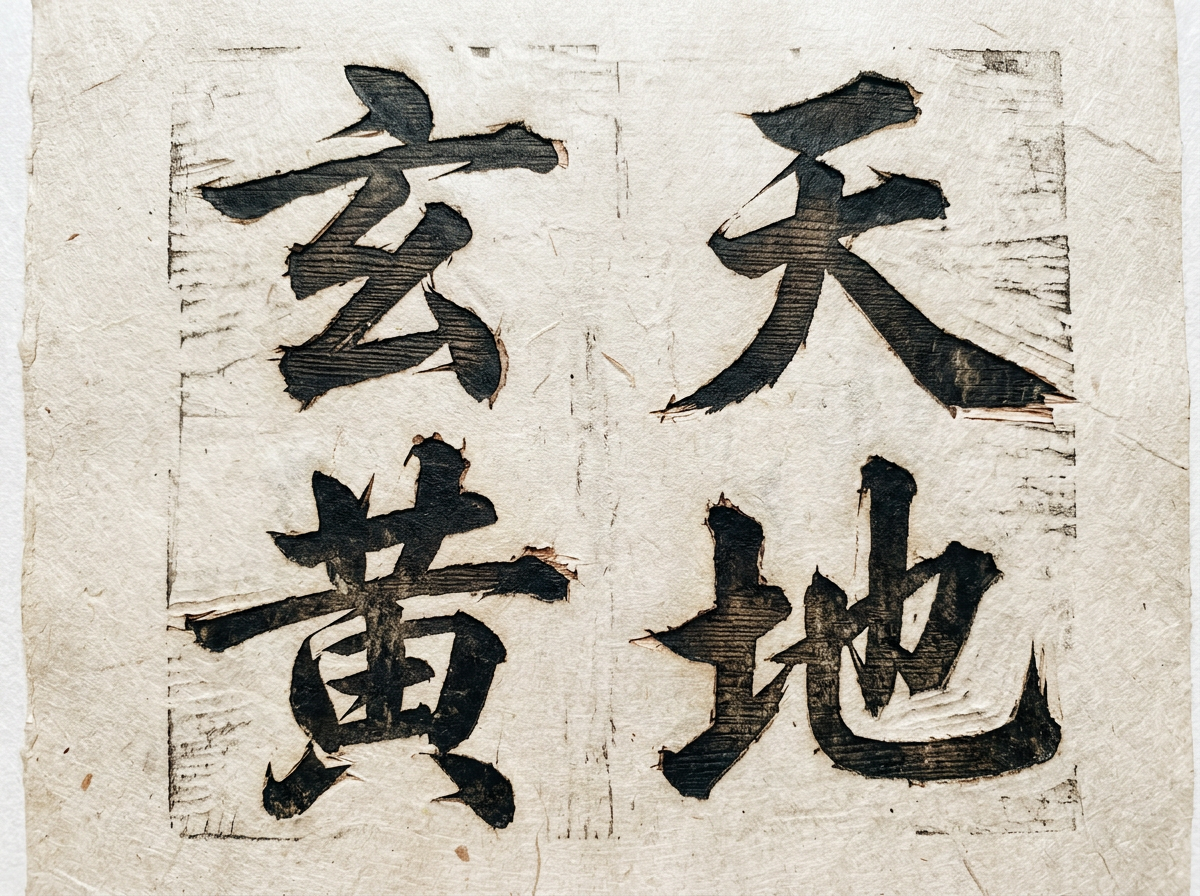 天地
玄黃